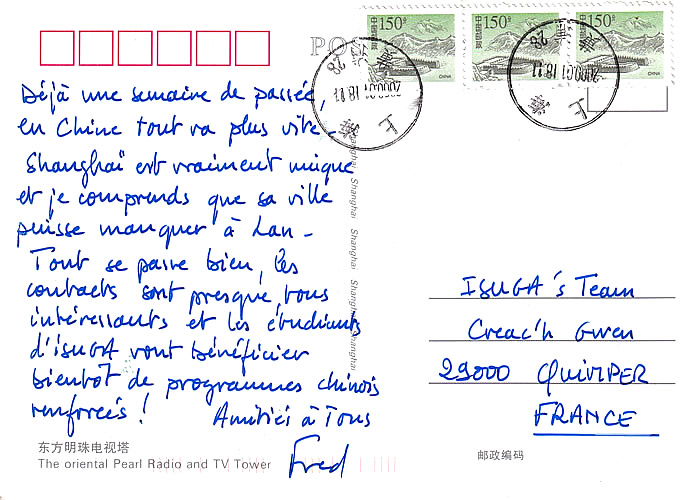 Déjà une semaine de passée,
en Chine tout va plus vite -
Shanghaï est vraiment unique
et je comprends que sa ville
puisse manquer à Lan -
Tout se passe bien, les
contacts sont presque tous
intéressants et les étudiants
d'ISUGA vont bénéficier
bientôt de programmes chinois
renforcés !
Amitiés à Tous
Fred
东方明珠电视塔
The oriental Pearl Radio and TV Tower
PO
150分
中国邮政
CHINA
150分
中国邮政
CHINA
150分
中国邮政
CHINA
上海
28
18 11
上海
28
2000.01.18 11
Shanghai Shanghai Shanghai Shanghai Shanghai
ISUGA's Team
Creac'h Gwen
29000 QUIMPER
FRANCE
邮政编码